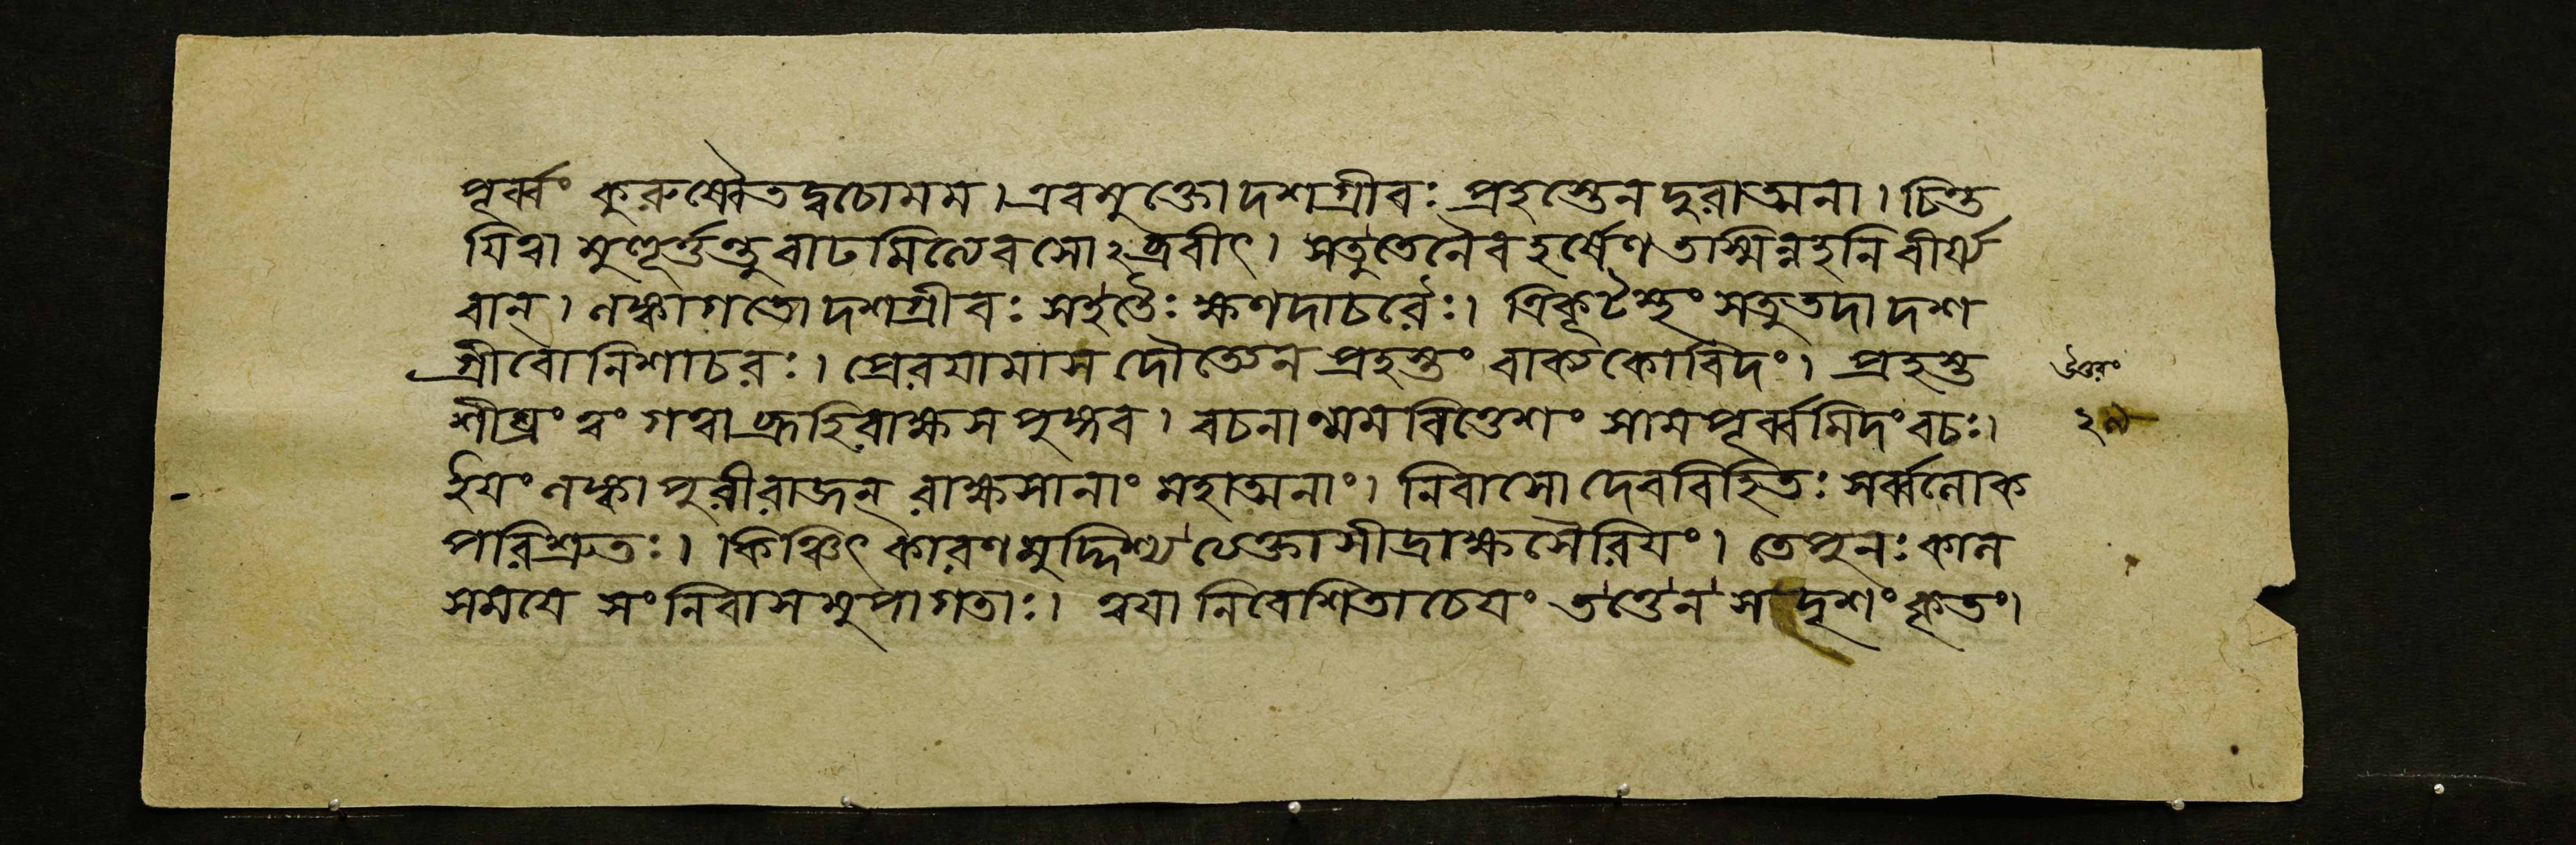 পূর্ব্বং কুরুষ্বৈতদ্বচোমম। এবমুক্তোদশগ্রীবঃ প্রহস্তেনদুরাত্মনা। চিন্ত
যিত্বা মুহূর্ত্তন্তু বাঢমিত্যেবসোঽব্রবীৎ। সতুতেনৈবহর্ষেণ তস্মিন্নহনি বীর্য্য
বান্। লঙ্কাগতো দশগ্রীবঃ সহ তৈঃ ক্ষণদাচরৈঃ। ত্রিকূটস্থঃ সতুতদা দশ
গ্রীবো নিশাচরঃ। প্রেরযামাস দৌত্যেন প্রহস্তং বাক্যকোবিদং। প্রহস্ত
শীঘ্রং ত্বং গত্বা ব্রূহি রাক্ষসপুঙ্গব। বচনান্মম বিত্তেশং সামপূর্ব্বমিদং বচঃ।
ইযং লঙ্কা পুরী রাজন্ রাক্ষসানাং মহাত্মনাং। নিবাসো দেববিহিতঃ সর্ব্বলোক
পরিশ্রুতঃ। কিঞ্চিৎ কারণমুদ্দিশ্য ত্যক্তাসীদ্রাক্ষসৈরিযং। তে পুনঃ কাল
সমযে সংনিবাসমুপাগতাঃ। ত্বযা নিবেশিতা চেযং তত্তে ন সদৃশং কৃতং।
উত্তরং
২৯